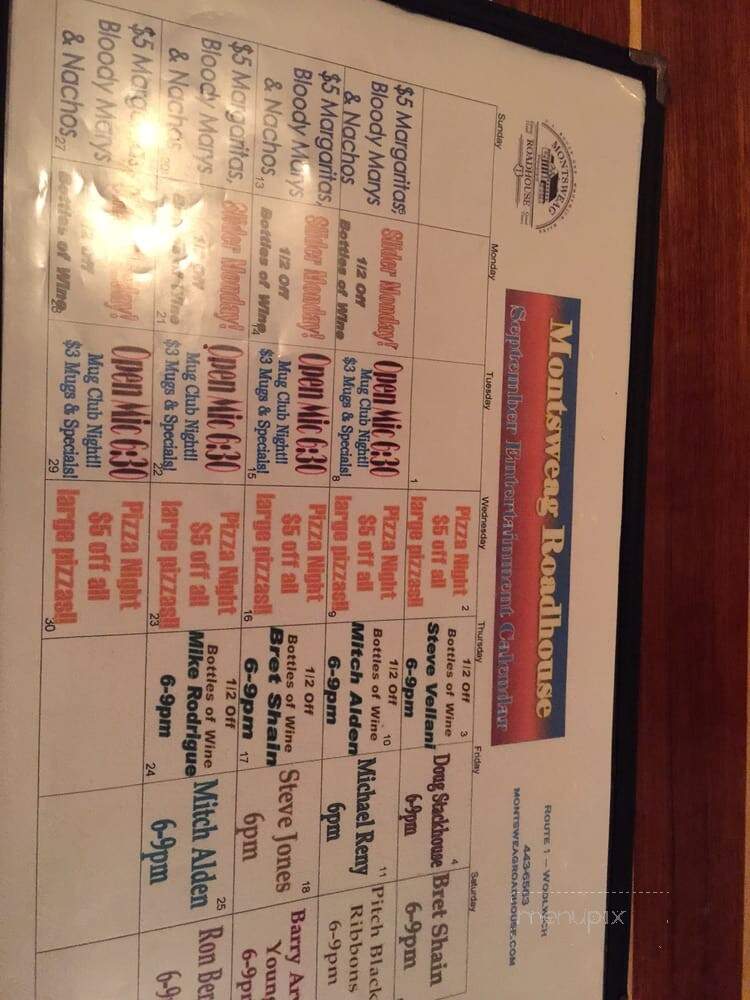 MONTSWEAG
ROADHOUSE
Montsweag Roadhouse
September Entertainment Calendar
ROUTE 1 – WOOLWICH
443-6563
MONTSWEAGROADHOUSE.COM
Sunday
Monday
Tuesday
Wednesday
Thursday
Friday
Saturday
1
Pizza Night 2
$5 off all
large pizzas!!
1/2 Off 3
Bottles of Wine
Steve Vellani
6-9pm
4
Doug Stackhouse
6-9pm
Bret Shain
6-9pm
$5 Margaritas,
Bloody Marys
& Nachos
Slider Monday!
1/2 Off
Bottles of Wine
Open Mic 6:30
Mug Club Night!!
$3 Mugs & Specials!
8
Pizza Night
$5 off all
large pizzas!!
9
1/2 Off 10
Bottles of Wine
Mitch Alden
6-9pm
11
Michael Remy
6pm
Pitch Black
Ribbons
6-9pm
$5 Margaritas,
Bloody Marys
& Nachos
13
Slider Monday!
1/2 Off
Bottles of Wine
14
Open Mic 6:30
Mug Club Night!!
$3 Mugs & Specials!
15
Pizza Night
$5 off all
large pizzas!!
16
1/2 Off
Bottles of Wine
Bret Shain
6-9pm
17
18
Steve Jones
6pm
Barry
6-9p
$5 Margaritas,
Bloody Marys
& Nachos
Slider Monday!
1/2 Off
21
Open Mic 6:30
Mug Club Night!!
$3 Mugs & Specials!
22
Pizza Night
$5 off all
large pizzas!!
23
1/2 Off
Bottles of Wine
Mike Rodrigue
6-9pm
24
25
Mitch Alden
6-9pm
Ron
$5
Bloody Marys
& Nachos
27
Bottles of Wine
28
Open Mic 6:30
Mug Club Night!!
$3 Mugs & Specials!
29
Pizza Night
$5 off all
large pizzas!!
30
menupix